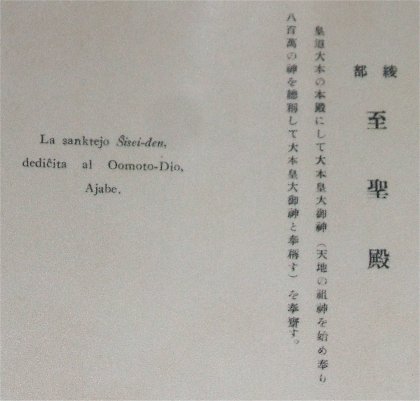 綾都
至聖殿
皇道大本の本殿にして大本皇大御神(天地の祖神を始め奉り
八百萬の神を總稱して大本皇大御神と奉稱す)を奉齋す。
La sanktejo Ŝisei-den,
dediĉita al Oomoto-Dio,
Ajabe.